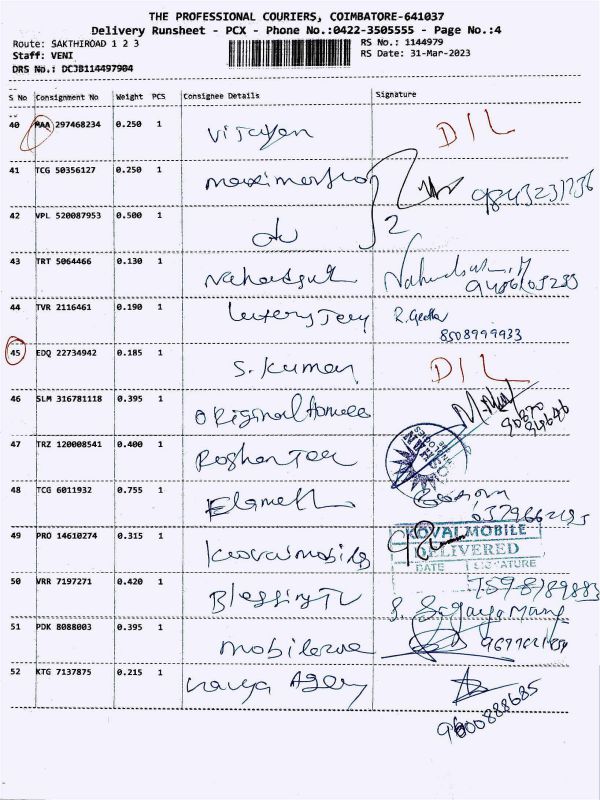 THE PROFESSIONAL COURIERS, COIMBATORE-641037
Delivery Runsheet - PCX - Phone No.:0422-3505555 - Page No.:4
Route: SAKTHIROAD 1 2 3
RS No.: 1144979
Staff: VENI
RS Date: 31-Mar-2023
DRS No.: DCJB114497904
S No Consignment No Weight PCS Consignee Details Signature
40 MAA 297468234 0.250 1 Vijayan DIL
41 TCG 50356127 0.250 1 9843231736
42 VPL 520087953 0.500 1 do 2
43 TRT 5064466 0.130 1
44 TVR 2116461 0.190 1 R. Geetha
8508999933
45 EDQ 22734942 0.185 1 S. Kumar DIL
46 SLM 316781118 0.395 1 Original Homes
47 TRZ 120008541 0.400 1 Roshan Tex
48 TCG 6011932 0.755 1
49 PRO 14610274 0.315 1 Kovai mobiles
KOVAI MOBILE
DELIVERED
DATE SIGNATURE
50 VRR 7197271 0.420 1 Blessing TV
51 PDK 8088003 0.395 1
52 KTG 7137875 0.215 1
9600888685